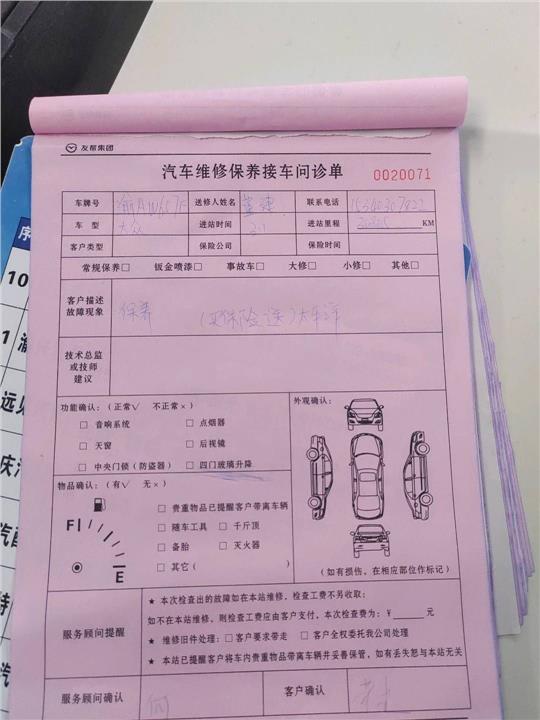 友帮集团
汽车维修保养接车问诊单
0020071
车牌号 送修人姓名 联系电话
车 型 大众 进站时间 进站里程 KM
客户类型 保险公司 保险时间
常规保养□ 钣金喷漆□ 事故车□ 大修□ 小修□ 其他□
客户描述
故障现象
保养 (买保险送)太平洋
技术总监
或技师
建议
功能确认：(正常√ 不正常×)
□ 音响系统 □ 点烟器
□ 天窗 □ 后视镜
□ 中央门锁（防盗器） □ 四门玻璃升降
外观确认：
(如有损伤，在相应部位作标记)
物品确认：(有√ 无×)
F
E
□ 贵重物品已提醒客户带离车辆
□ 随车工具 □ 千斤顶
□ 备胎 □ 灭火器
□ 其它( )
服务顾问提醒
★ 本次检查出的故障如在本站维修，检查工费不另收取；
如不在本站维修，则检查工费应由客户支付，本次检查费为：¥ 元
★ 维修旧件处理：□ 客户要求带走 □ 客户全权委托我公司处理
★ 本站已提醒客户将车内贵重物品带离车辆并妥善保管，如有丢失恕与本站无关
服务顾问确认 客户确认
序
10
1
远见